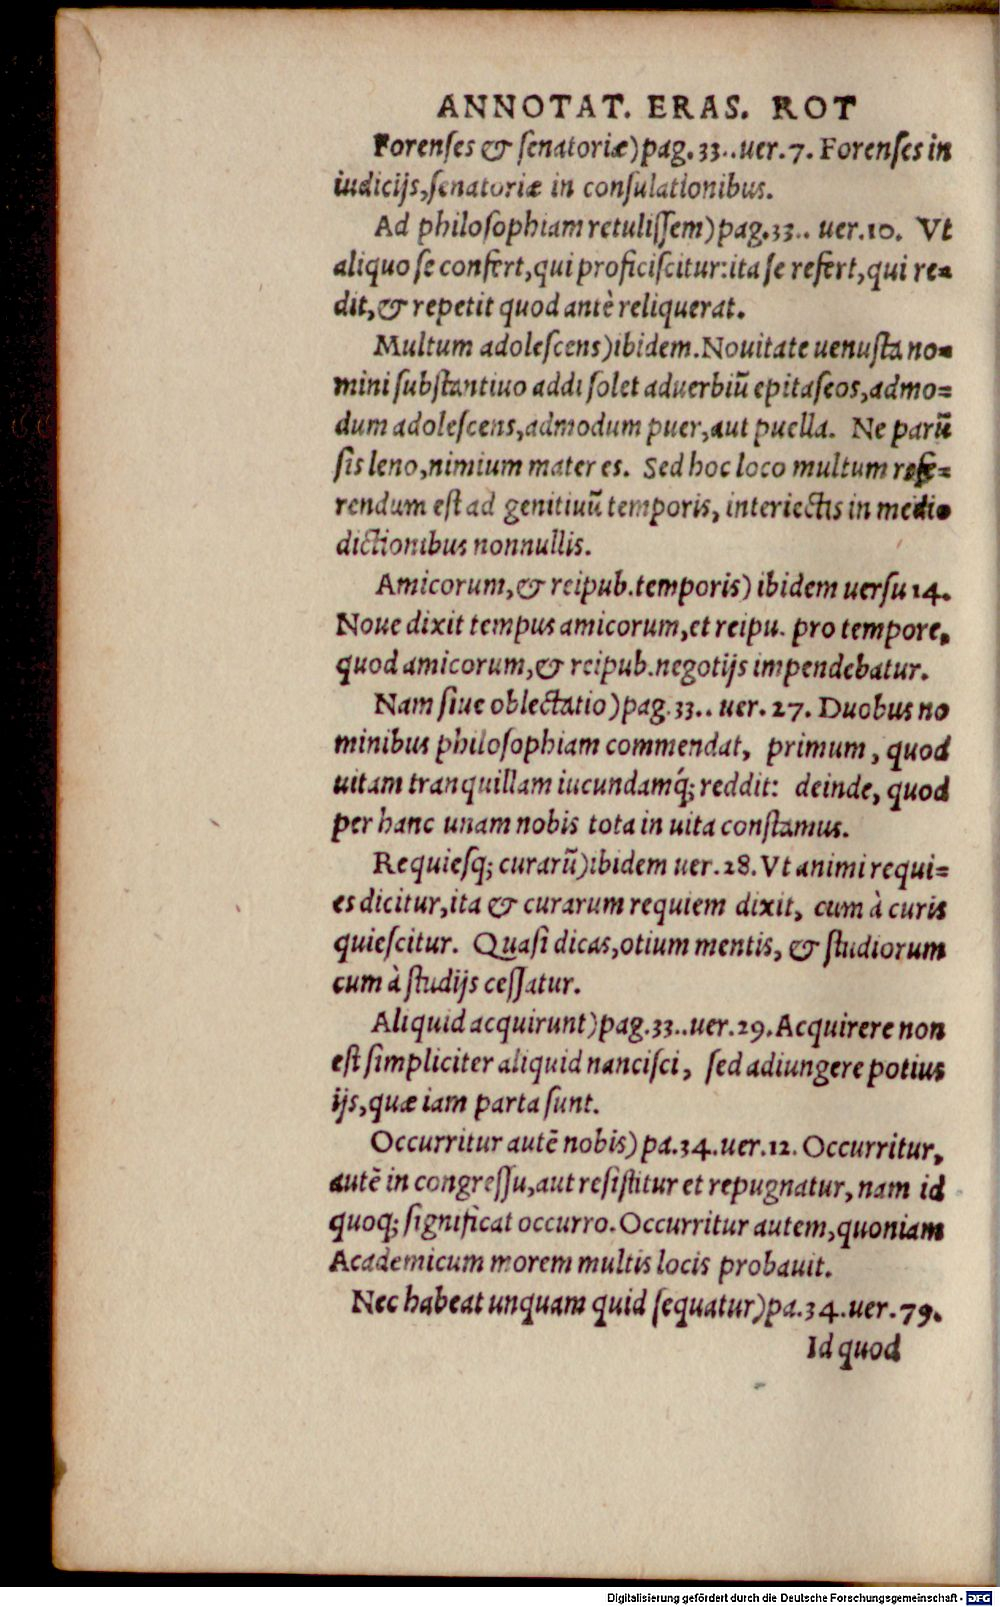 ANNOTAT. ERAS. ROT
Forenſes & ſenatoriæ) pag. 33.. uer. 7. Forenſes in
iudicijs, ſenatoriæ in conſulationibus.
Ad philoſophiam retuliſſem) pag. 33.. uer. 10. Vt
aliquo ſe confert, qui proficiſcitur: ita ſe refert, qui re=
dit, & repetit quod antè reliquerat.
Multum adoleſcens) ibidem. Nouitate uenuſta no=
mini ſubſtantiuo addi ſolet aduerbiũ epitaſeos, admo=
dum adoleſcens, admodum puer, aut puella. Ne parũ
ſis leno, nimium mater es. Sed hoc loco multum refe=
rendum eſt ad genitiuũ temporis, interiectis in medio
dictionibus nonnullis.
Amicorum, & reipub. temporis) ibidem uerſu 14.
Noue dixit tempus amicorum, et reipu. pro tempore,
quod amicorum, & reipub. negotijs impendebatur.
Nam ſiue oblectatio) pag. 33.. uer. 27. Duobus no
minibus philoſophiam commendat, primum, quod
uitam tranquillam iucundamq́; reddit: deinde, quod
per hanc unam nobis tota in uita conſtamus.
Requieſq; curarũ) ibidem uer. 28. Vt animi requi=
es dicitur, ita & curarum requiem dixit, cum à curis
quieſcitur. Quaſi dicas, otium mentis, & ſtudiorum
cum à ſtudijs ceſſatur.
Aliquid acquirunt) pag. 33.. uer. 29. Acquirere non
eſt ſimpliciter aliquid nanciſci, ſed adiungere potius
ijs, quæ iam parta ſunt.
Occurritur autẽ nobis) pa. 34. uer. 12. Occurritur,
autẽ in congreſſu, aut reſiſtitur et repugnatur, nam id
quoq; ſignificat occurro. Occurritur autem, quoniam
Academicum morem multis locis probauit.
Nec habeat unquam quid ſequatur) pa. 34. uer. 79.
Id quod
Digitalisierung gefördert durch die Deutsche Forschungsgemeinschaft - DFG